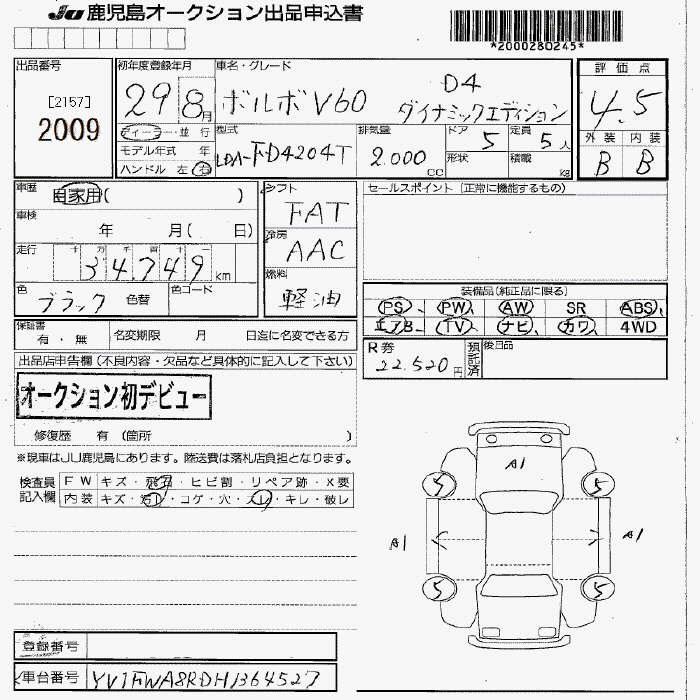 JU 鹿児島オークション出品申込書
*2000280245*
出品番号
[2157]
2009
初年度登録年月
29 8月
車名・グレード
ボルボ V60 D4
ダイナミックエディション
評価点
4.5
外装 内装
B B
ディーラー・並行
モデル年式 年
ハンドル 左 右
型式
LDA-FD4204T
排気量
2.000 CC
ドア 5
形状
定員 5人
積載 kg
車歴 自家用( )
車検
年 月( 日)
走行 十 万 千 百 十 一
34,749 km
色
ブラック 色替
色コード
シフト
FAT
冷房
AAC
燃料
軽油
セールスポイント (正常に機能するもの)
装備品(純正品に限る)
PS、 PW、 AW SR ABS、
エアB TV、 ナビ、 カワ、 4WD
R券
22.520円
預託済
後日品
保証書
有・無 名変期限 月 日迄に名変できる方
出品店申告欄(不良内容・欠品など具体的に記入して下さい)
オークション初デビュー
修復歴 有 (箇所 )
※現車はJU鹿児島にあります。陸送費は落札店負担となります。
検査員記入欄
FW キズ・飛石・ヒビ割・リペア跡・X要
内装 キズ・汚レ・コゲ・穴・スレ・キレ・破レ
A1
5 5
A1 A1
5 5
登録番号
車台番号 YV1FWA8RDH1364527